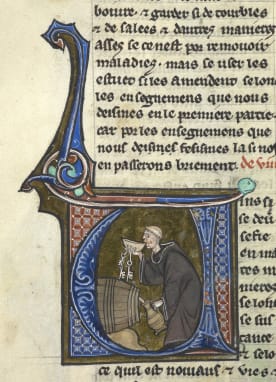 boiure. ⁊ garder si de tourbles
⁊ de salees ⁊ dautres manieres
asses se ce nest por remouoir
maladies. mais se user les
estuet si les amendent selon
les enseignemens que nous
deismes en le premiere partie
car por les enseignemens que
nous deismes la si no
en passerons briement. de vin
ins si
se di
se fie
en ma
res m
nieres
se lon
se sus
tance
⁊ selo
ce quil est nouiaus ⁊ vies ⁊